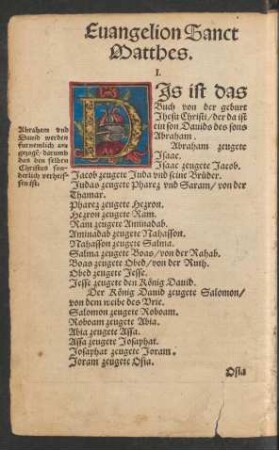 Euangelion Sanct
Matthes.
I.
DIs ist das
Buch von der geburt
Jhesu Christi/ der da ist
ein son Dauids des sons
Abraham.
Abraham zeugete
Isaac.
Isaac zeugete Jacob.
Abraham vnd
Dauid werden
furnemlich an-
gezogẽ/ darumb
das den selben
Christus son-
derlich verheis-
sen ist.
Jacob zeugete Juda vnd seine Brüder.
Judas zeugete Pharez vnd Saram/ von der
Thamar.
Pharez zeugete Hezron.
Hezron zeugete Ram.
Ram zeugete Aminadab.
Aminadab zeugete Nahasson.
Nahasson zeugete Salma.
Salma zeugete Boas/ von der Rahab.
Boas zeugete Obed/ von der Ruth.
Obed zeugete Jesse.
Jesse zeugete den König Dauid.
Der König Dauid zeugete Salomon/
von dem weibe des Vrie.
Salomon zeugete Roboam.
Roboam zeugete Abia.
Abia zeugete Assa.
Assa zeugete Josaphat.
Josaphat zeugete Joram.
Joram zeugete Osia.
Osia